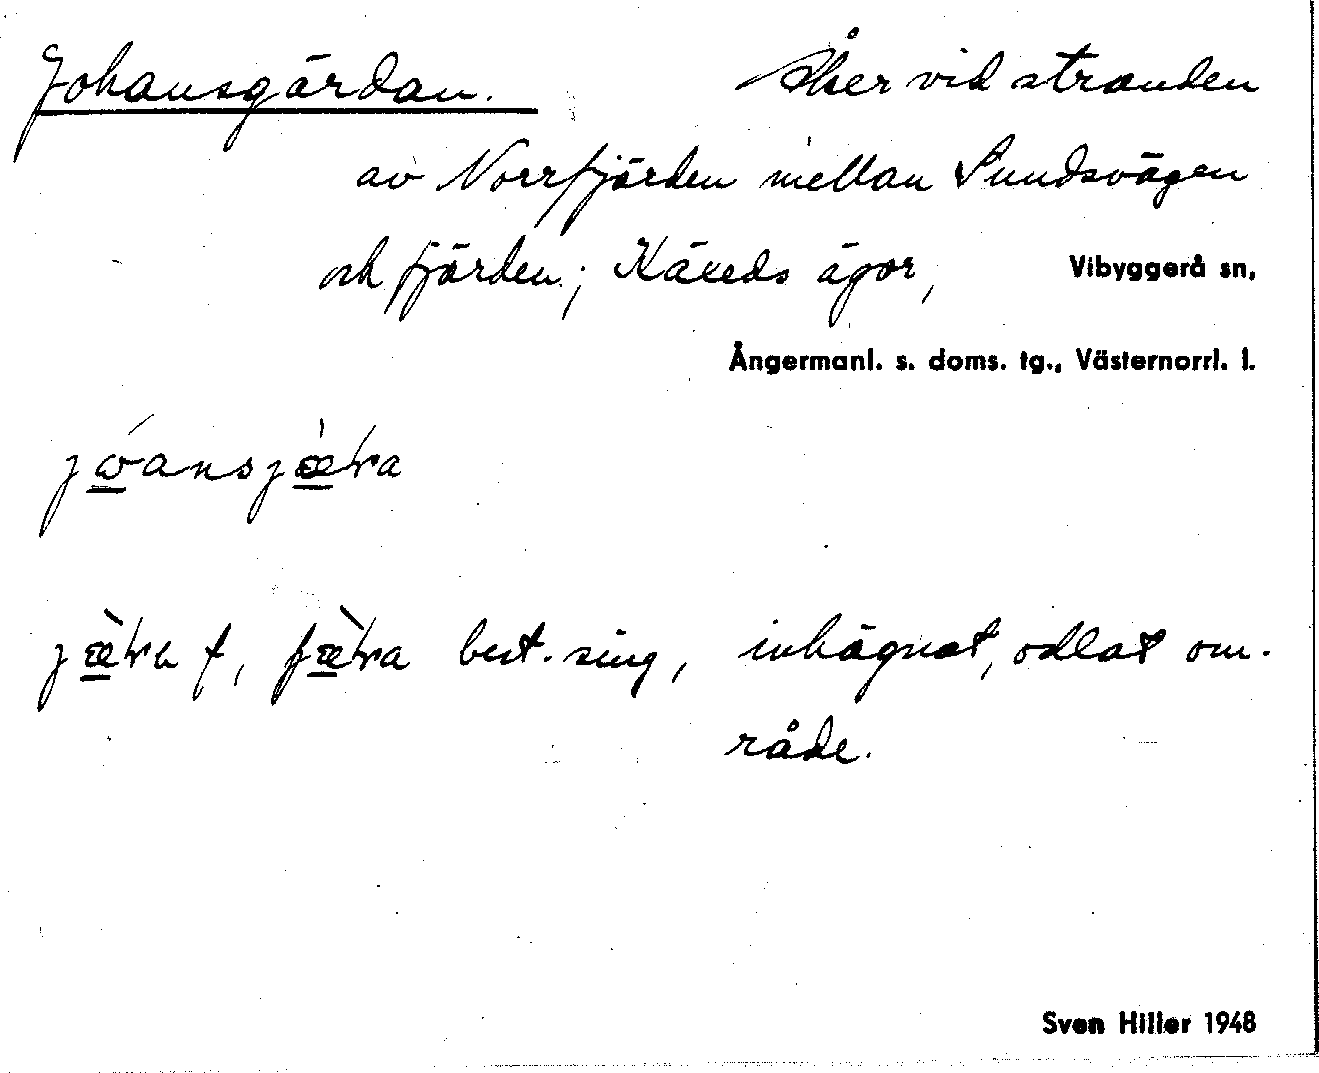 Johansgärdan. Åker vid stranden
av Norrfjärden mellan Sundsvägen
och fjärden; Käxeds ägor, Vibyggerå sn,
Ångermanl. s. doms. tg., Västernorrl. l.
best. sing, inhägnat, odlat om-
råde.
Sven Hiller 1948